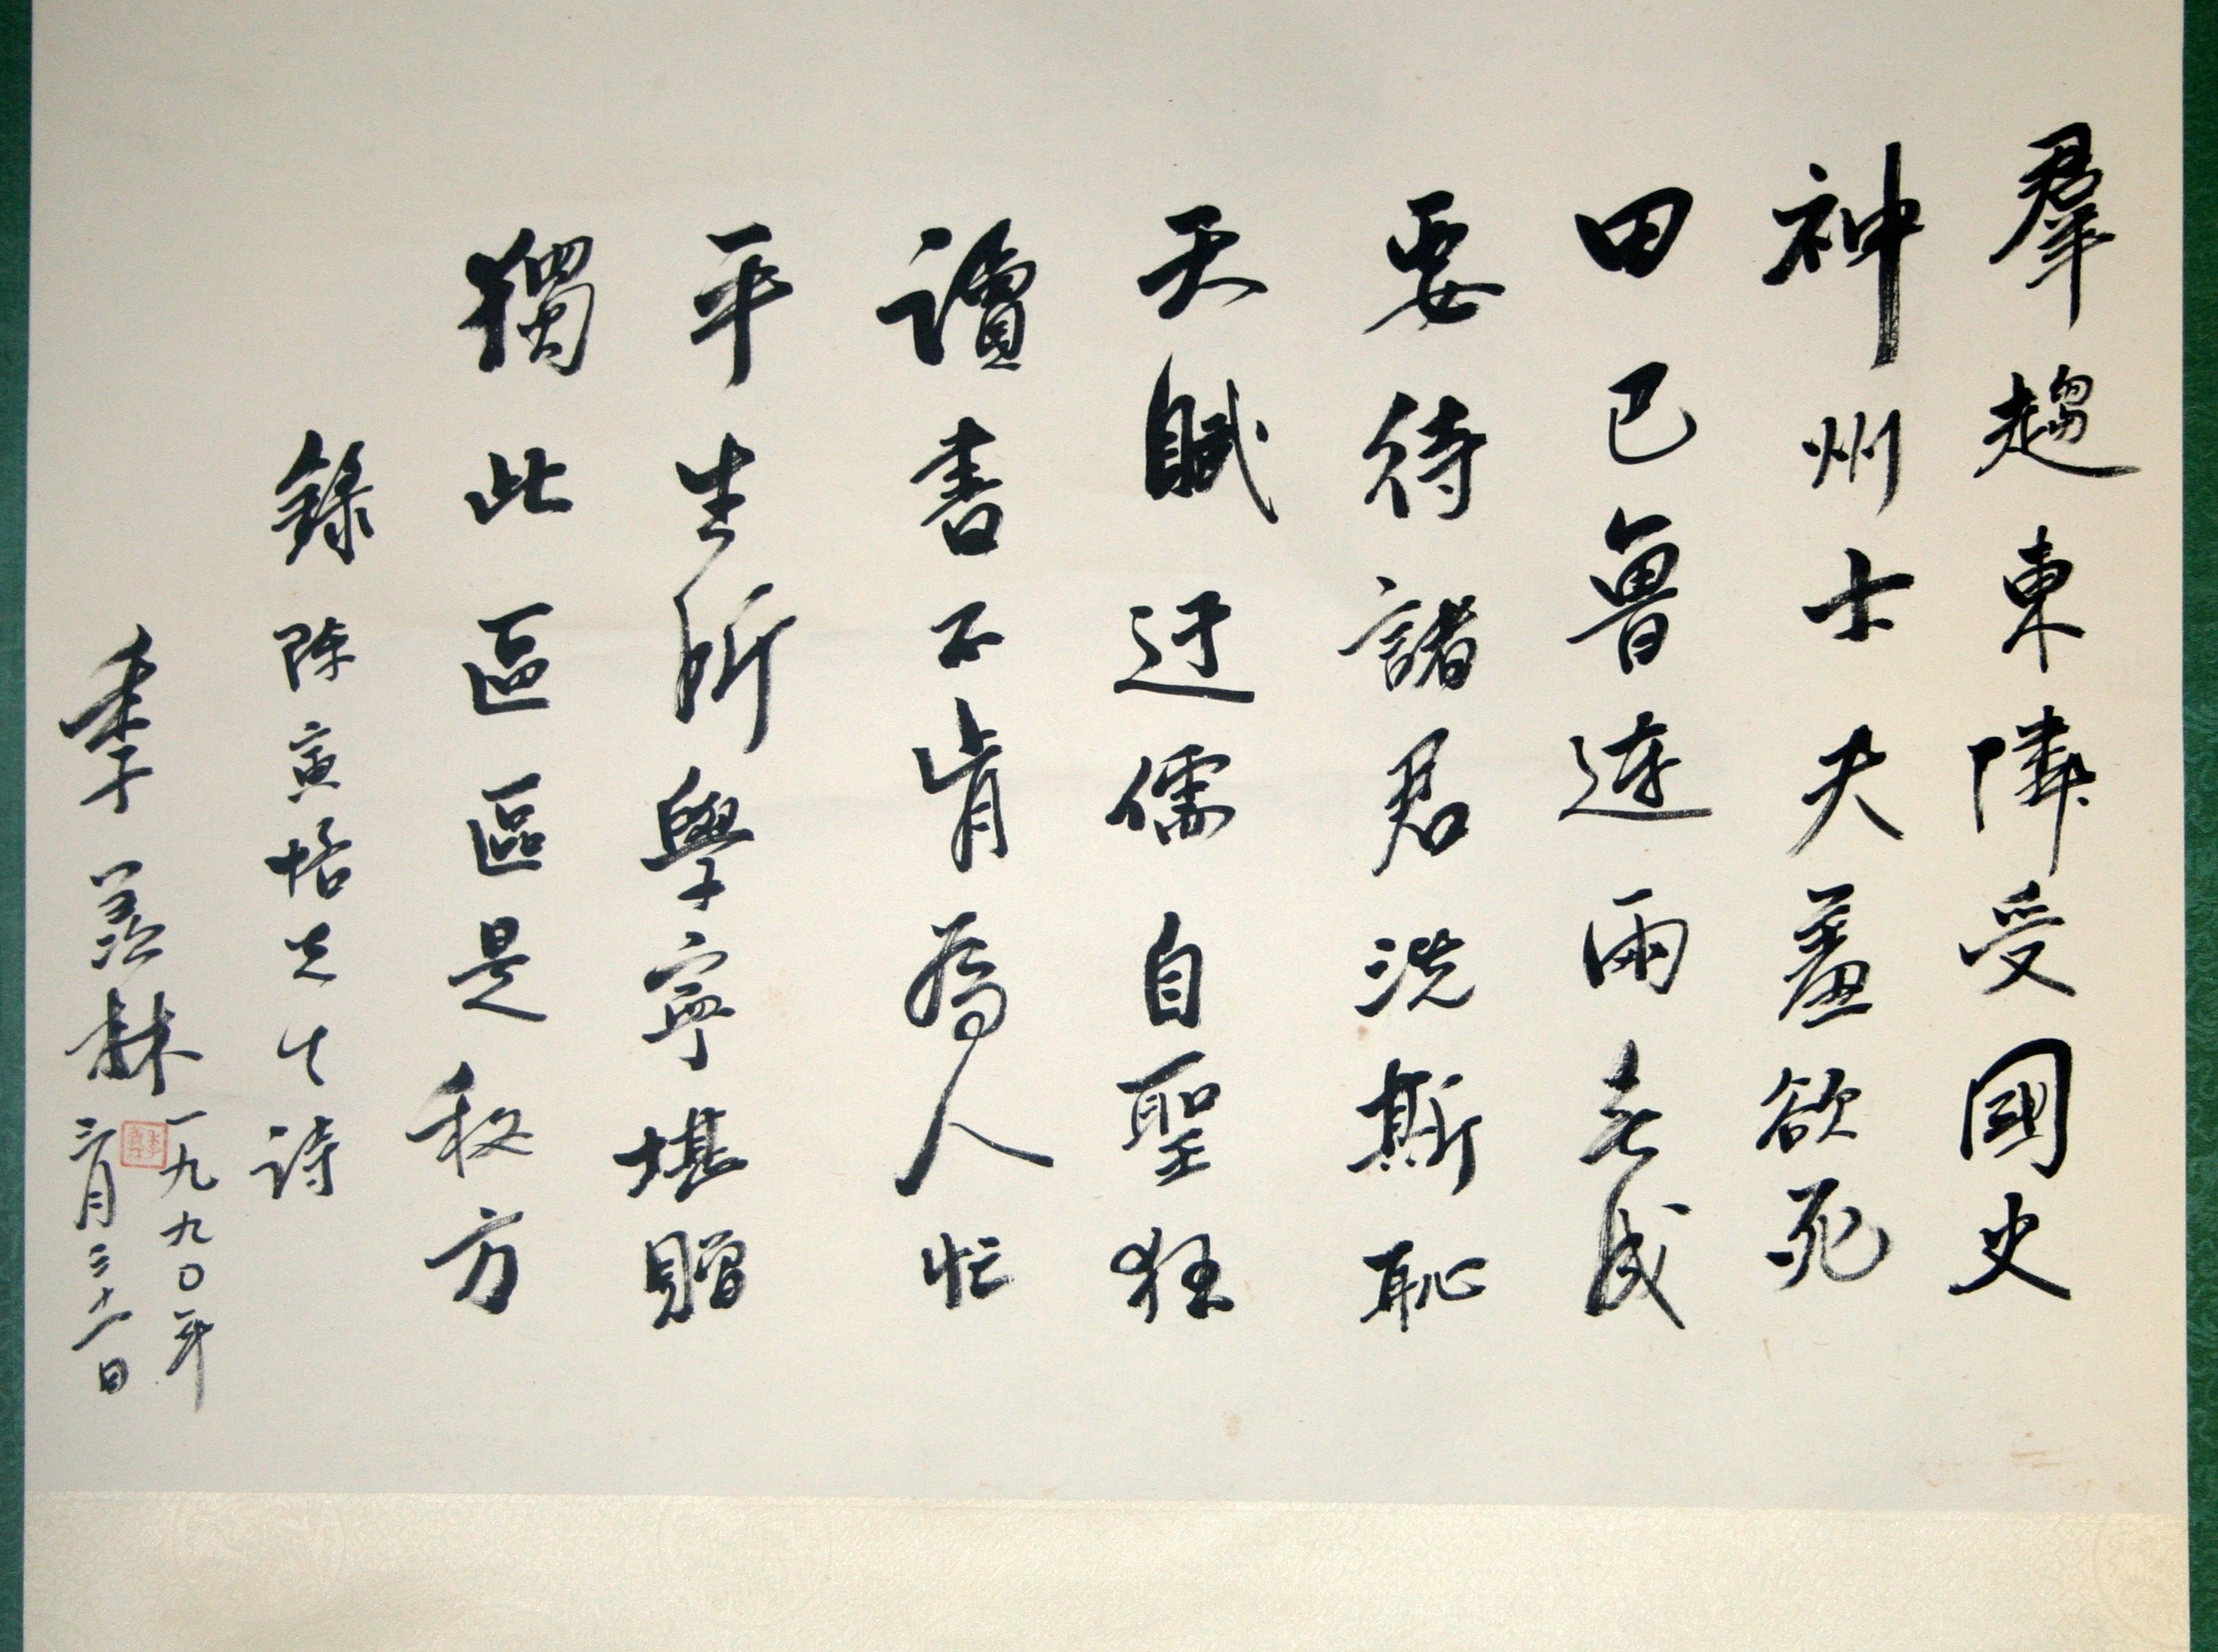 羣趨東隣受國史
神州士夫羞欲死
田巴魯連兩無成
要待諸君洗斯恥
天賦迂儒自聖狂
讀書不肯為人忙
平生所學寧堪贈
獨此區區是秘方
錄陳寅恪先生詩
季羨林
一九九〇年
三月三十一日